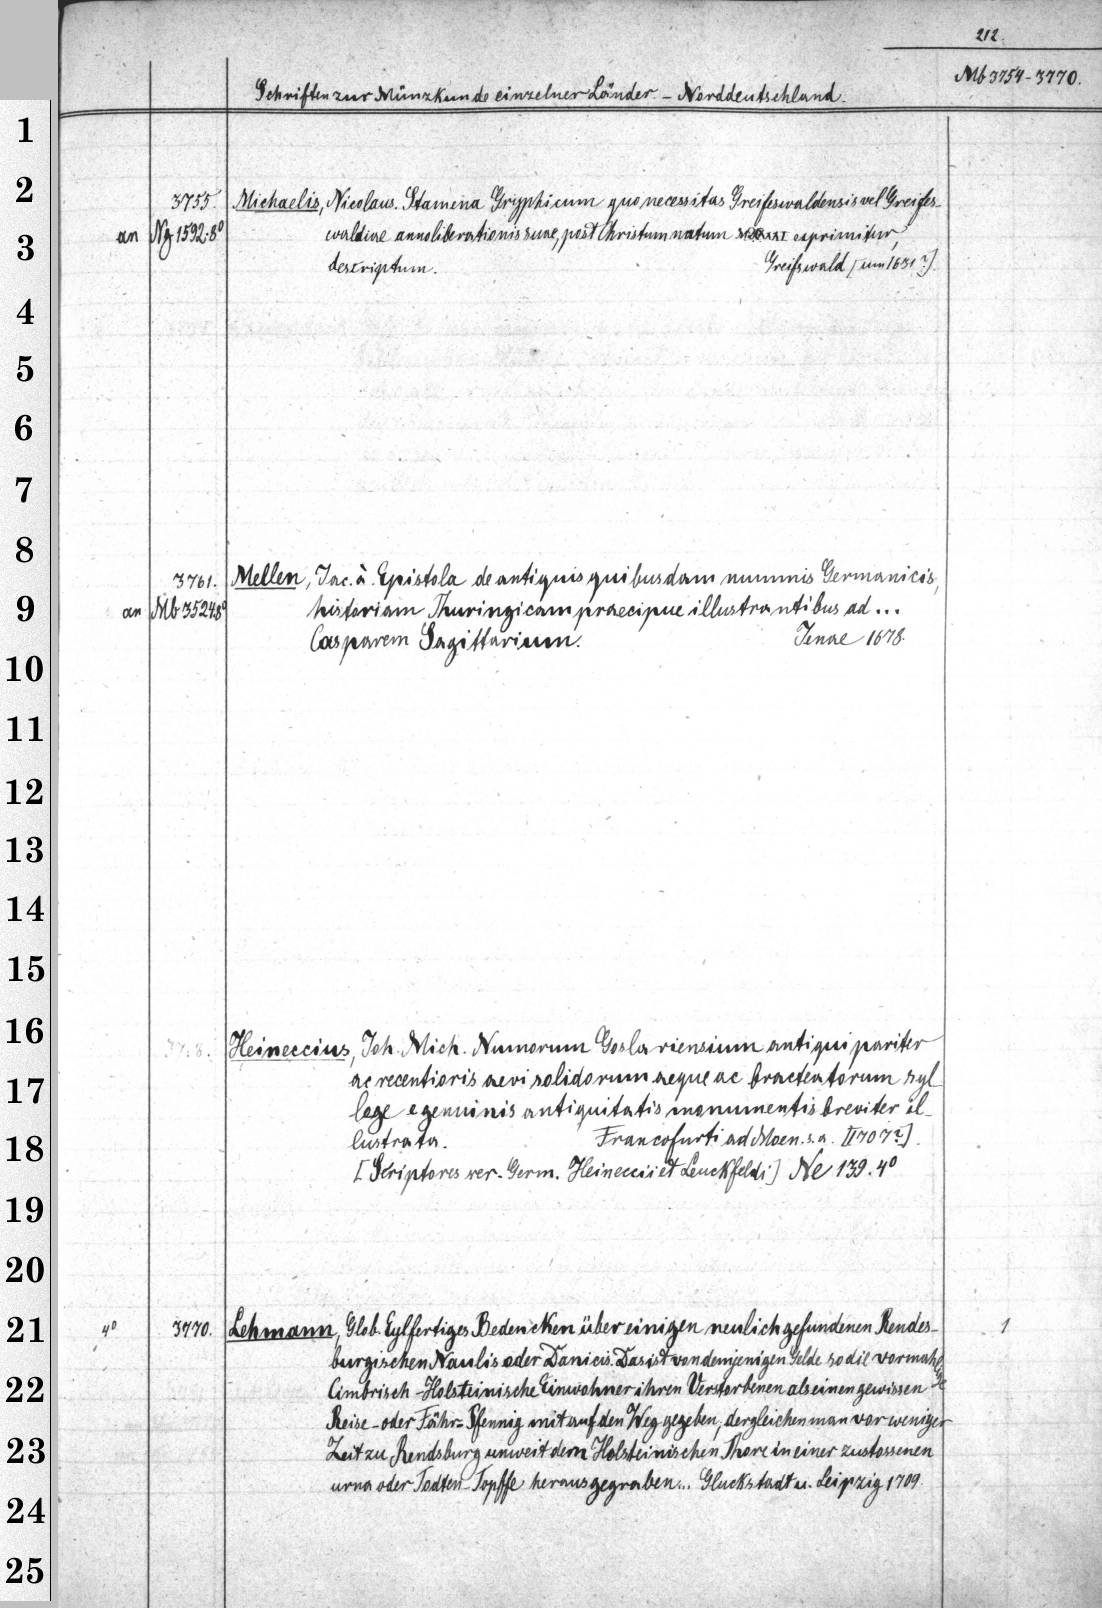 212.
Mb 3754-3770.
Schriften zur Münzkunde einzelner Länder. - Norddeutschland.
1
2
3755. Michaelis, Nicolaus. Stamina Gryphicum quo necessitas Greifeswaldensis vel Greifes-
3
an Ng 1592.8° waldiae anno liberationis suae, post Christum natum exprimitur,
descriptum. Greifswald [um 1631?]
4
5
6
7
8
3761. Mellen, Jac. à. Epistola de antiquis quibusdam nummis Germanicis,
9
an Mb 3524 8° historiam Thuringicam praecipue illustrantibus ad ...
10
Casparem Sagittarium. Jenae 1678.
11
12
13
14
15
16
Heineccius, Joh. Mich. Numorum Goslariensium antiqui pariter
17
ac recentioris aevi solidorum aeque ac bracteatorum syl-
loge e genuinis antiquitatis monumentis breviter il-
18
lustrata. Francofurti ad Moen. s. a. [1707?].
[Scriptores rer. Germ. Heineccii et Leuckfeldi] Ne 139. 4°
19
20
21
4° 3770. Lehmann, Glob. Eylfertiges Bedencken über einigen neulich gefundenen Rendes- 1
burgischen Naulis oder Danicis. Das ist von demjenigen Gelde so die vormahlige
22
Cimbrisch-Holsteinische Einwohner ihren Verstorbenen als einen gewissen
Reise- oder Fähr-Pfennig mit auf den Weg gegeben, dergleichen man vor weniger
23
Zeit zu Rendsburg unweit dem Holsteinischen Thore in einer zustossenen
urna oder Todten-Topffe herausgegraben... Gluckstadt u. Leipzig 1709.
24
25